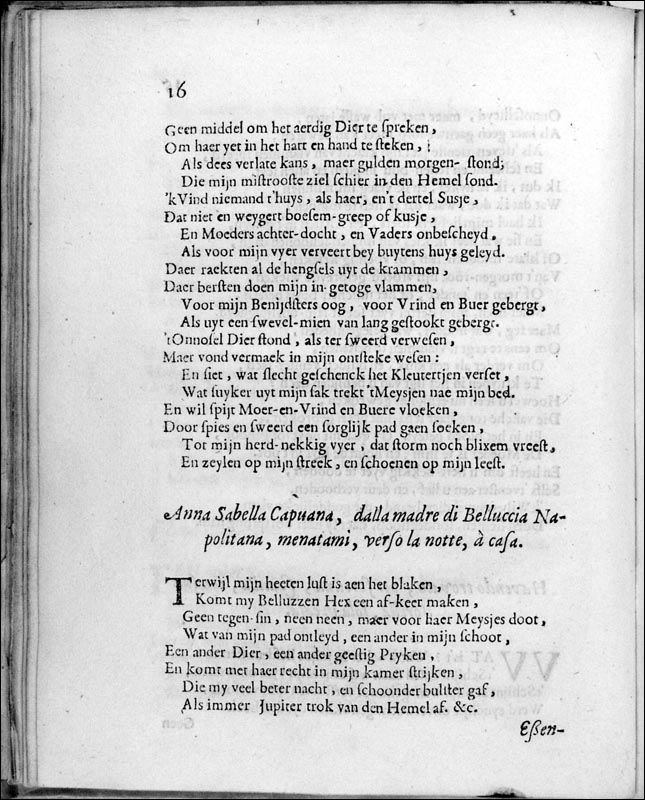 16
Geen middel om het aerdig Dier te ſpreken,
Om haer yet in het hart en hand te ſteken,
Als dees verlate kans, maer gulden morgen-ſtond;
Die mijn miſtrooſte ziel ſchier in den Hemel ſond.
'kVind niemand t'huys, als haer, en't dertel Susje,
Dat niet en weygert boeſem-greep of kusje,
En Moeders achter-docht, en Vaders onbeſcheyd,
Als voor mijn vyer verveert bey buytens huys geleyd.
Daer raekten al de hengſels uyt de krammen,
Daer berſten doen mijn in-getoge vlammen,
Voor mijn Benijdſters oog, voor Vrind en Buer gebergt,
Als uyt een ſwevel-mien van lang geſtookt gebergt.
'tOnnoſel Dier ſtond, als ter ſweerd verweſen,
Maer vond vermaek in mijn ontſteke weſen:
En ſiet, wat ſlecht geſchenck het Kleutertjen verſet,
Wat ſuyker uyt mijn ſak trekt 'tMeysjen nae mijn bed.
En wil ſpijt Moer-en-Vrind en Buere vloeken,
Door ſpies en ſweerd een ſorglijk pad gaen ſoeken,
Tot mijn herd-nekkig vyer, dat ſtorm noch blixem vreeſt,
En zeylen op mijn ſtreek, en ſchoenen op mijn leeſt.
Anna Sabella Capuana, dalla madre di Belluccia Na-
politana, menatami, verſo la notte, à caſa.
Terwijl mijn heeten luſt is aen het blaken,
Komt my Belluzzen Hex een af-keer maken,
Geen tegen-ſin, neen neen, maer voor haer Meysjes doot,
Wat van mijn pad ontleyd, een ander in mijn ſchoot,
Een ander Dier, een ander geeſtig Pryken,
En komt met haer recht in mijn kamer ſtrijken,
Die my veel beter nacht, en ſchoonder bulſter gaf,
Als immer Jupiter trok van den Hemel af. &c.
Eßen-